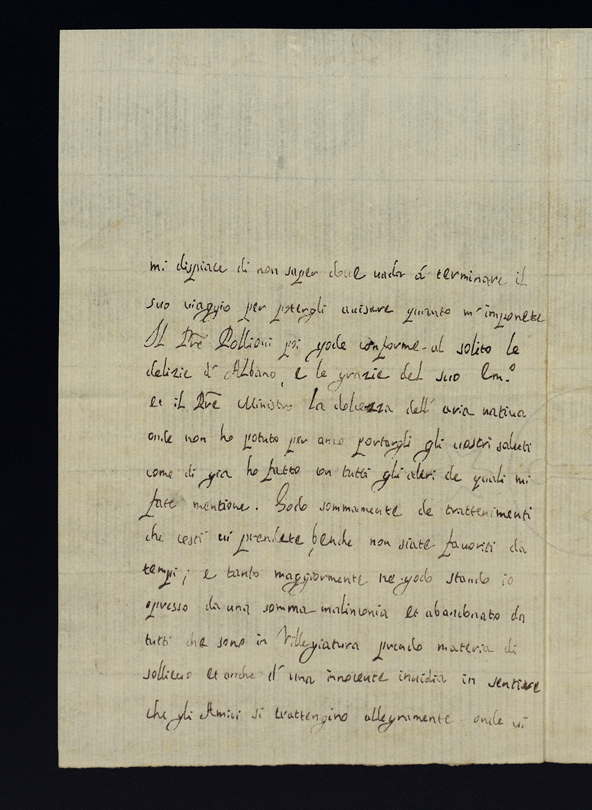 mi dispiace di non saper doue uada à terminare il
suo viaggio per potergli auisare quanto m'imponete
Il Pre Pollioni poi gode conforme al solito le
delizie d'Albano, e le grazie del suo Em.o
et il Pre Ministro la dolcezza dell'aria natiua
onde non ho potuto per anco portargli gli uostri saluti
come di gia ho fatto con tutti gli altri de quali mi
fate mentione. Godo sommamente de trattenimenti
che costì ui prendete benche non siate fauoriti da
tempi; e tanto maggiormente ne godo stando io
opresso da una somma malinconia et abandonato da
tutti che sono in Villegiatura prendo materia di
sollieuo et anche d'una innocente inuidia in sentire
che gli Amici si trattengino allegramente onde ui